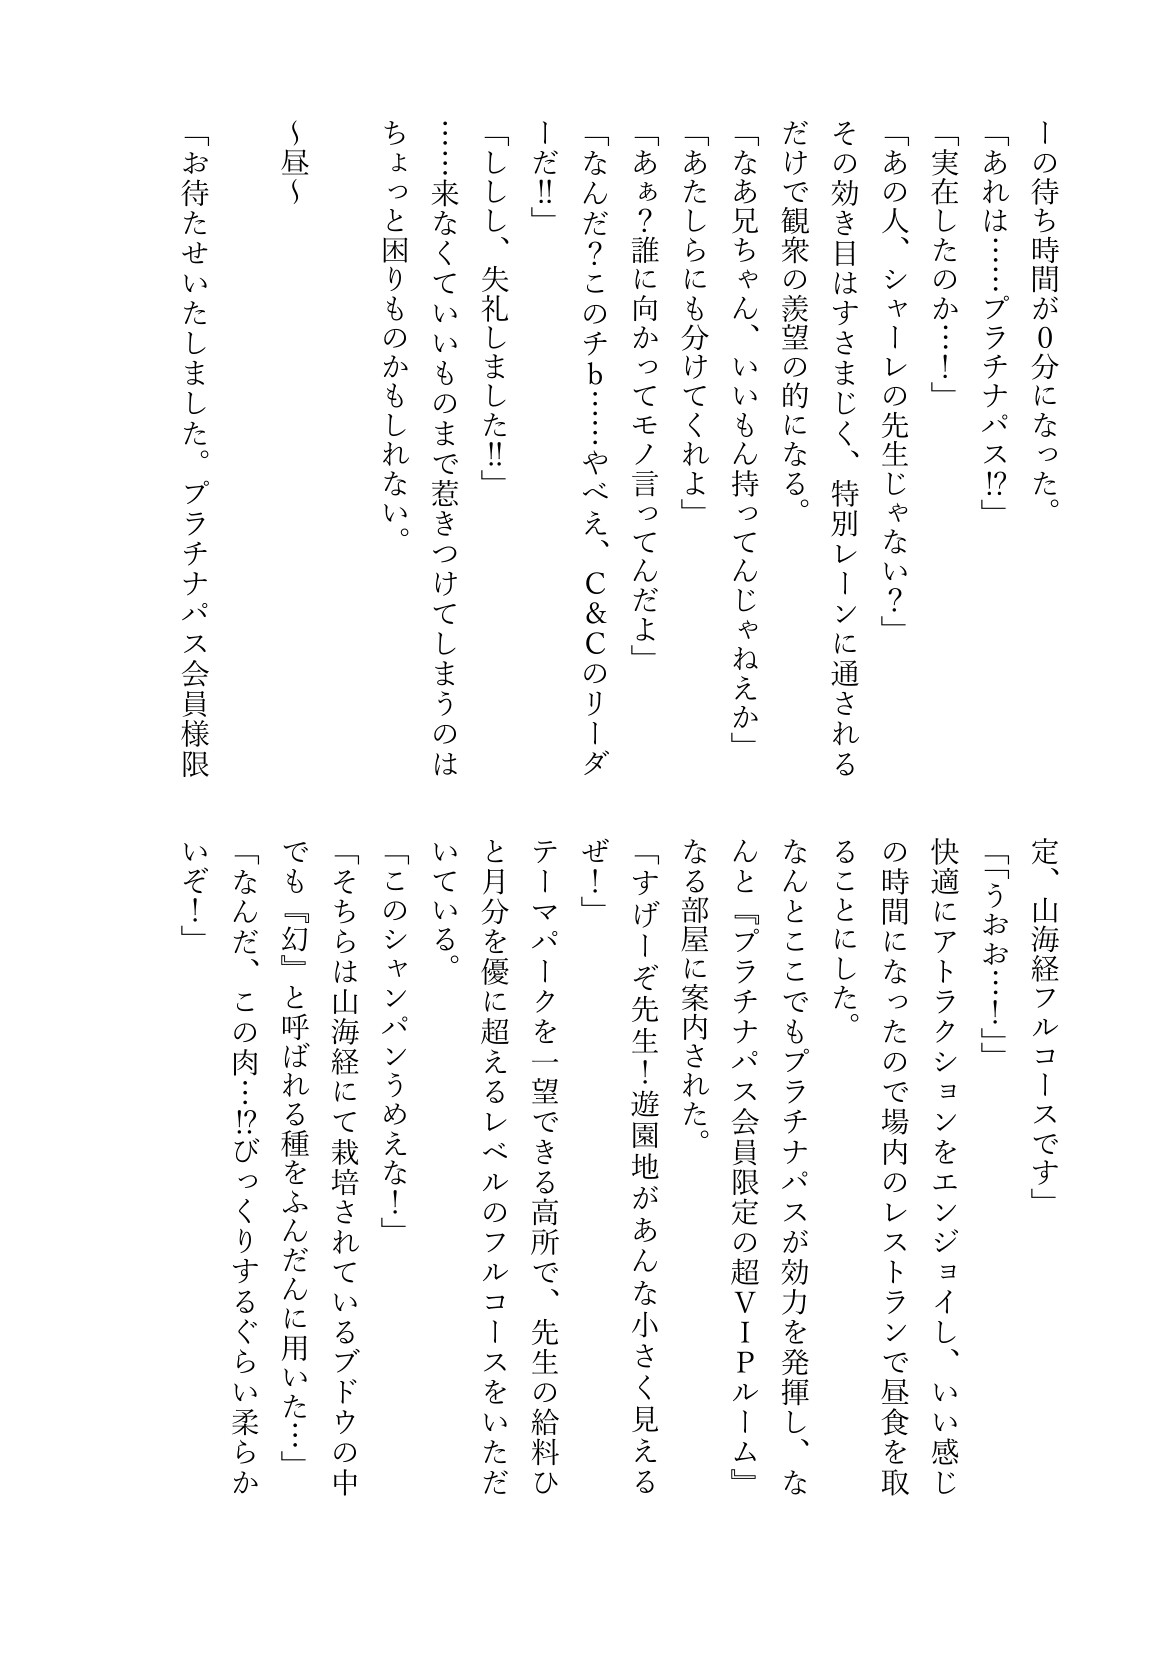 ーの待ち時間が０分になった。
「あれは……プラチナパス⁉」
「実在したのか…！」
「あの人、シャーレの先生じゃない？」
その効き目はすさまじく、特別レーンに通される
だけで観衆の羨望の的になる。
「なあ兄ちゃん、いいもん持ってんじゃねえか」
「あたしらにも分けてくれよ」
「あぁ？誰に向かってモノ言ってんだよ」
「なんだ？このチｂ……やべえ、Ｃ＆Ｃのリーダ
ーだ‼」
「ししし、失礼しました‼」
……来なくていいものまで惹きつけてしまうのは
ちょっと困りものかもしれない。
～昼～
「お待たせいたしました。プラチナパス会員様限
定、山海経フルコースです」
「「うおお…！」」
快適にアトラクションをエンジョイし、いい感じ
の時間になったので場内のレストランで昼食を取
ることにした。
なんとここでもプラチナパスが効力を発揮し、な
んと『プラチナパス会員限定の超ＶＩＰルーム』
なる部屋に案内された。
「すげーぞ先生！遊園地があんな小さく見える
ぜ！」
テーマパークを一望できる高所で、先生の給料ひ
と月分を優に超えるレベルのフルコースをいただ
いている。
「このシャンパンうめえな！」
「そちらは山海経にて栽培されているブドウの中
でも『幻』と呼ばれる種をふんだんに用いた…」
「なんだ、この肉…⁉びっくりするぐらい柔らか
いぞ！」